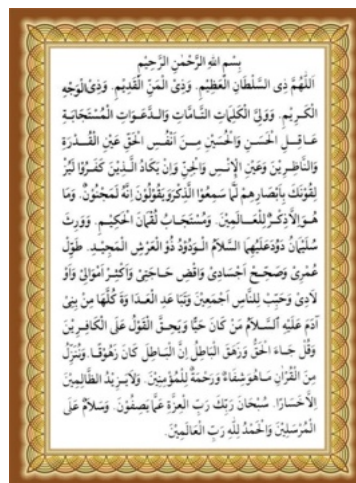 بِسْمِ اللهِ الرَّحْمٰنِ الرَّحِيْمِ
اَللّٰهُمَّ ذِى السُّلْطَانِ الْعَظِيْمِ. وَذِىْ الْمَنِّ الْقَدِيْمِ. وَذِىْ الْوَجْهِ
الْكَرِيْمِ. وَوَلِيِّ الْكَلِمَاتِ التَّآمَّاتِ وَالدَّعَوَاتِ الْمُسْتَجَابَةِ
عَاقِلِ الْحَسَنِ وَالْحُسَيْنِ مِنْ اَنْفُسِ الْحَقِّ عَيْنِ الْقُدْرَةِ
وَالنَّاظِرِيْنَ وَعَيْنِ الْاِنْسِ وَالْجِنِّ وَاِنْ يَكَادُ الَّذِيْنَ كَفَرُوْا لَيُزْ
لِقُوْنَكَ بِاَبْصَارِهِمْ لَمَّا سَمِعُوْا الذِّكْرَ وَيَقُوْلُوْنَ اِنَّهُ لَمَجْنُوْنٌ. وَمَا
هُوَ اِلَّا ذِكْرٌ لِلْعَالَمِيْنَ. وَمُسْتَجَابُ لُقْمَانَ الْحَكِيْمِ. وَوَرِثَ
سُلَيْمَانُ دَوُدَ عَلَيْهِمَا السَّلَامُ الْوَدُوْدُ ذُو الْعَرْشِ الْمَجِيْدِ. طَوِّلْ
عُمْرِىْ وَصَحِّحْ اَجْسَادِىْ وَاقْضِ حَاجَتِىْ وَاَكْثِرْ اَمْوَالِىْ وَاَوْ
لَادِىْ وَحَبِّبْ لِلنَّاسِ اَجْمَعِيْنَ وَتَبَاعَدِ الْعَدَا وَةَ كُلَّهَا مِنْ بَنِىْ
آدَمَ عَلَيْهِ السَّلَامُ مَنْ كَانَ حَيًّا وَيَحِقَّ الْقَوْلُ عَلَى الْكَافِرِيْنَ
وَقُلْ جَاءَ الْحَقُّ وَزَهَقَ الْبَاطِلُ اِنَّ الْبَاطِلَ كَانَ زَهُوْقًا. وَنُنَزِّلُ
مِنَ الْقُرْاٰنِ مَا هُوَ شِفَاءٌ وَرَحْمَةٌ لِلْمُؤْمِنِيْنَ. وَلَا يَزِيْدُ الظَّالِمِيْنَ
اِلَّا خَسَارًا. سُبْحَانَ رَبِّكَ رَبِّ الْعِزَّةِ عَمَّا يَصِفُوْنَ. وَسَلَامٌ عَلَى
الْمُرْسَلِيْنَ وَالْحَمْدُ لِلّٰهِ رَبِّ الْعَالَمِيْنَ.